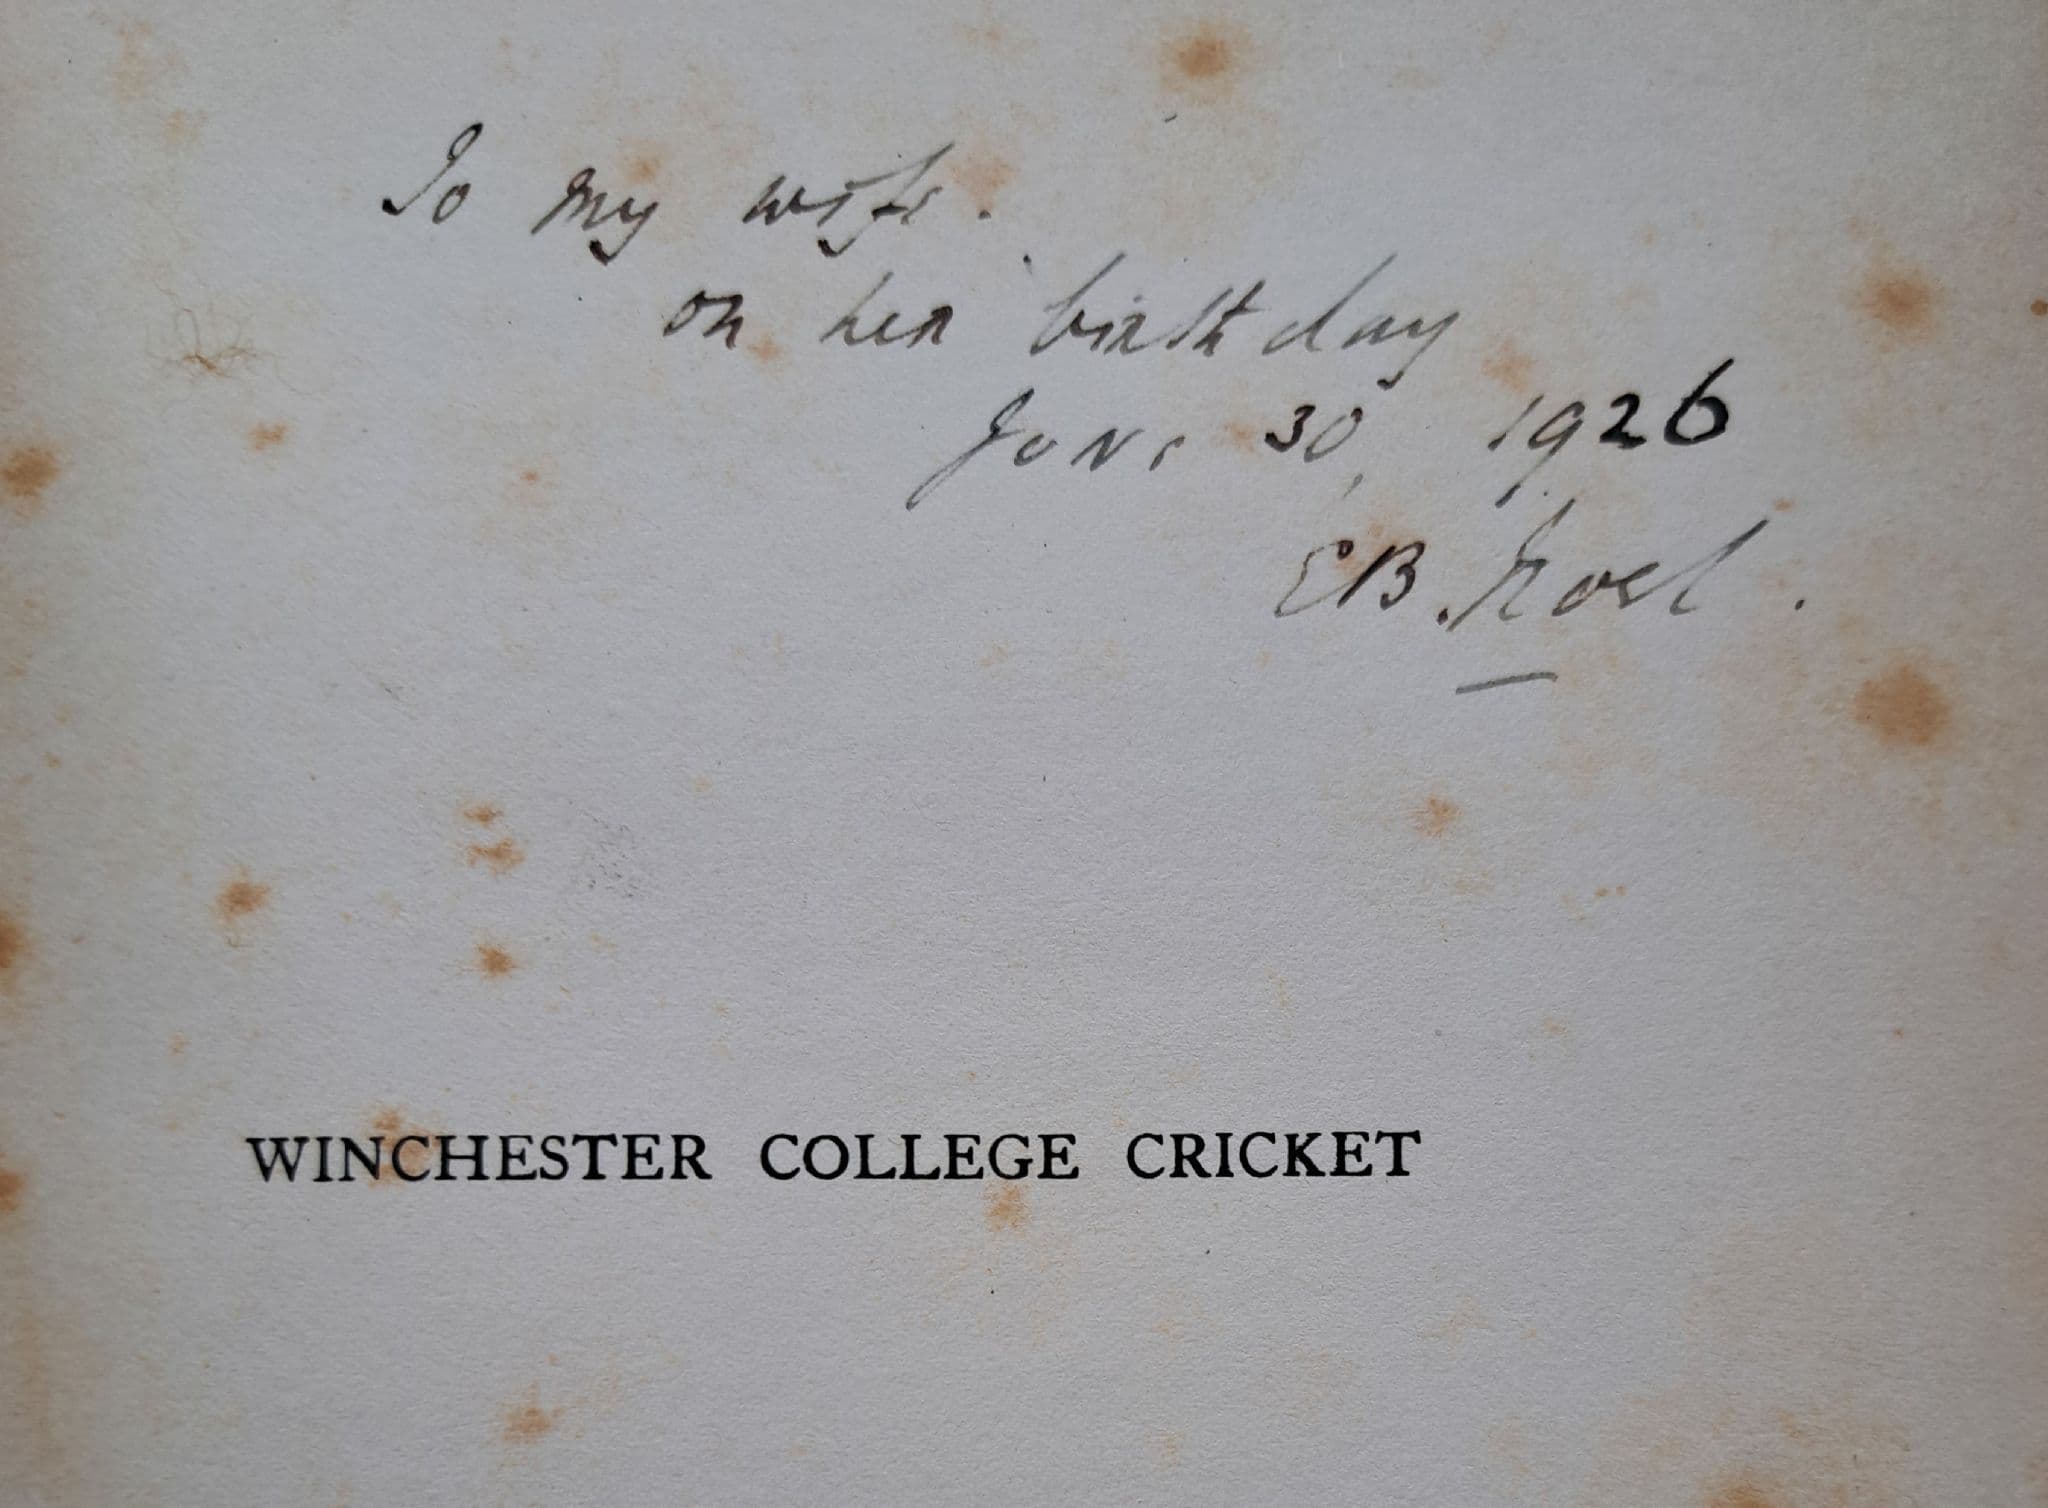 To my wife.
on her birthday
June 30, 1926
EB. Noel.
WINCHESTER COLLEGE CRICKET